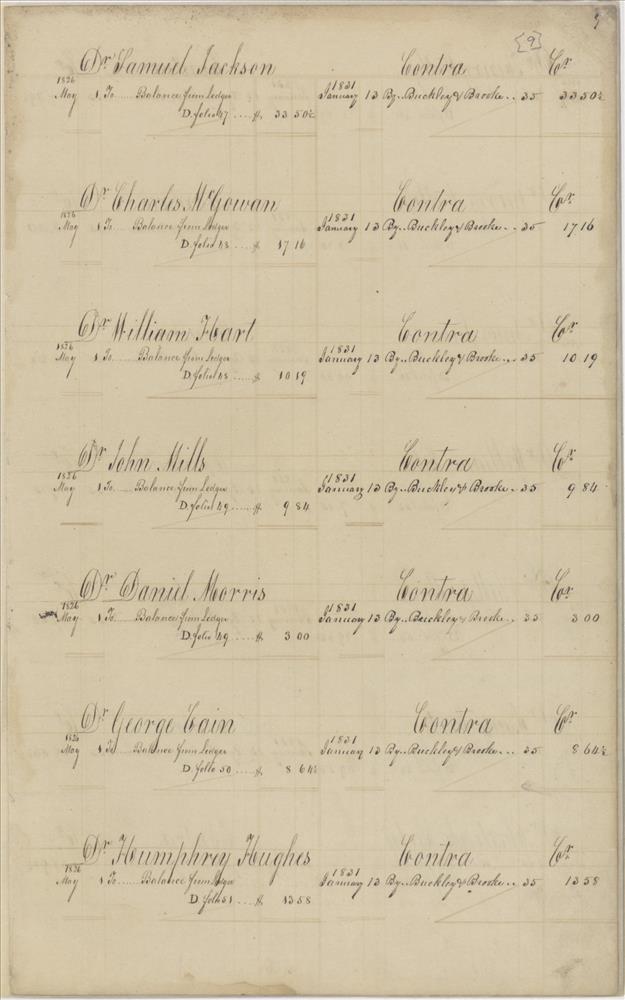 [9]
9
Dr Samuel Jackson Contra Cr
1826 1831
May 1 To ...... Balance from Ledger January 13 By .. Buckley & Brooke .. 35 33 50½
D. folio 47 .... $ 33 50½
Dr Charles McGowan Contra Cr
1826 1831
May 1 To ...... Balance from Ledger January 13 By .. Buckley & Brooke .. 35 17 16
D. folio 48 .... $ 17 16
Dr William Hart Contra Cr
1826 1831
May 1 To ...... Balance from Ledger January 13 By .. Buckley & Brooke .. 35 10 19
D. folio 48 .... $ 10 19
Dr John Mills Contra Cr
1826 1831
May 1 To ...... Balance from Ledger January 13 By .. Buckley & Brooke .. 35 9 84
D. folio 49 .... $ 9 84
Dr Daniel Morris Contra Cr
1826 1831
May 1 To ...... Balance from Ledger January 13 By .. Buckley & Brooke .. 35 3 00
D. folio 49 .... $ 3 00
Dr George Cain Contra Cr
1826 1831
May 1 To ...... Balance from Ledger January 13 By .. Buckley & Brooke .. 35 8 64½
D. folio 50 .... $ 8 64½
Dr Humphrey Hughes Contra Cr
1826 1831
May 1 To ...... Balance from Ledger January 13 By .. Buckley & Brooke .. 35 13 58
D. folio 51 .... $ 13 58